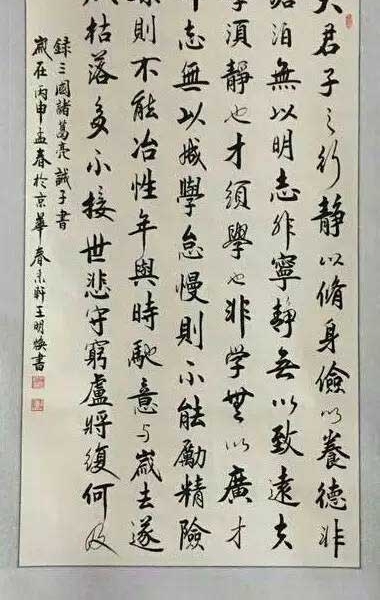 夫君子之行静以脩身儉以養德非
澹泊無以明志非寧静無以致遠夫
學須静也才須學也非学無以廣才
非志無以成學怠慢則不能勵精險
躁則不能冶性年與時馳意与歲去遂
成枯落多不接世悲守窮廬將復何及
録三國諸葛亮誡子書
歲在丙申孟春於京華春未軒王明煥書